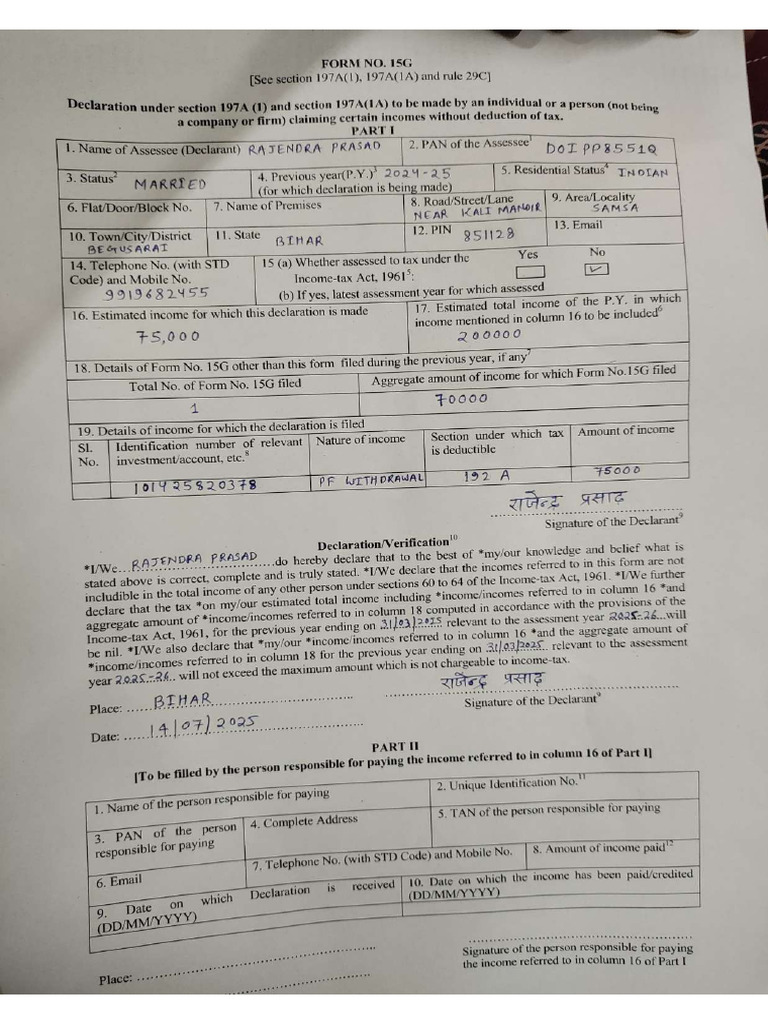 FORM NO. 15G
[See section 197A(1), 197A(1A) and rule 29C]
Declaration under section 197A (1) and section 197A(1A) to be made by an individual or a person (not being
a company or firm) claiming certain incomes without deduction of tax.
PART I
1. Name of Assessee (Declarant) RAJENDRA PRASAD
2. PAN of the Assessee1 DOIPP8551Q
3. Status2 MARRIED
4. Previous year(P.Y.)3 2024-25
(for which declaration is being made)
5. Residential Status4 INDIAN
6. Flat/Door/Block No.
7. Name of Premises
8. Road/Street/Lane
NEAR KALI MANDIR
9. Area/Locality
SAMSA
10. Town/City/District
BEGUSARAI
11. State BIHAR
12. PIN 851128
13. Email
14. Telephone No. (with STD
Code) and Mobile No.
9919682455
15 (a) Whether assessed to tax under the
Income-tax Act, 19615:
Yes No
(b) If yes, latest assessment year for which assessed
16. Estimated income for which this declaration is made
75,000
17. Estimated total income of the P.Y. in which
income mentioned in column 16 to be included6
200000
18. Details of Form No. 15G other than this form filed during the previous year, if any7
Total No. of Form No. 15G filed
Aggregate amount of income for which Form No.15G filed
1
70000
19. Details of income for which the declaration is filed
Sl.
No.
Identification number of relevant
investment/account, etc.8
Nature of income
Section under which tax
is deductible
Amount of income
101425820378
PF WITHDRAWAL
192 A
75000
राजेन्द्र प्रसाद
Signature of the Declarant9
Declaration/Verification10
*I/We... RAJENDRA PRASAD ...do hereby declare that to the best of *my/our knowledge and belief what is
stated above is correct, complete and is truly stated. *I/We declare that the incomes referred to in this form are not
includible in the total income of any other person under sections 60 to 64 of the Income-tax Act, 1961. *I/We further
declare that the tax *on my/our estimated total income including *income/incomes referred to in column 16 *and
aggregate amount of *income/incomes referred to in column 18 computed in accordance with the provisions of the
Income-tax Act, 1961, for the previous year ending on 31/03/2025 relevant to the assessment year 2025-26...will
be nil. *I/We also declare that *my/our *income/incomes referred to in column 16 *and the aggregate amount of
*income/incomes referred to in column 18 for the previous year ending on 31/03/2025 relevant to the assessment
year 2025-26.. will not exceed the maximum amount which is not chargeable to income-tax.
राजेन्द्र प्रसाद
Signature of the Declarant9
Place: BIHAR
Date: 14/07/2025
PART II
[To be filled by the person responsible for paying the income referred to in column 16 of Part I]
1. Name of the person responsible for paying
2. Unique Identification No.11
3. PAN of the person
responsible for paying
4. Complete Address
5. TAN of the person responsible for paying
6. Email
7. Telephone No. (with STD Code) and Mobile No.
8. Amount of income paid12
9. Date on which Declaration is received
(DD/MM/YYYY)
10. Date on which the income has been paid/credited
(DD/MM/YYYY)
Signature of the person responsible for paying
the income referred to in column 16 of Part I
Place: